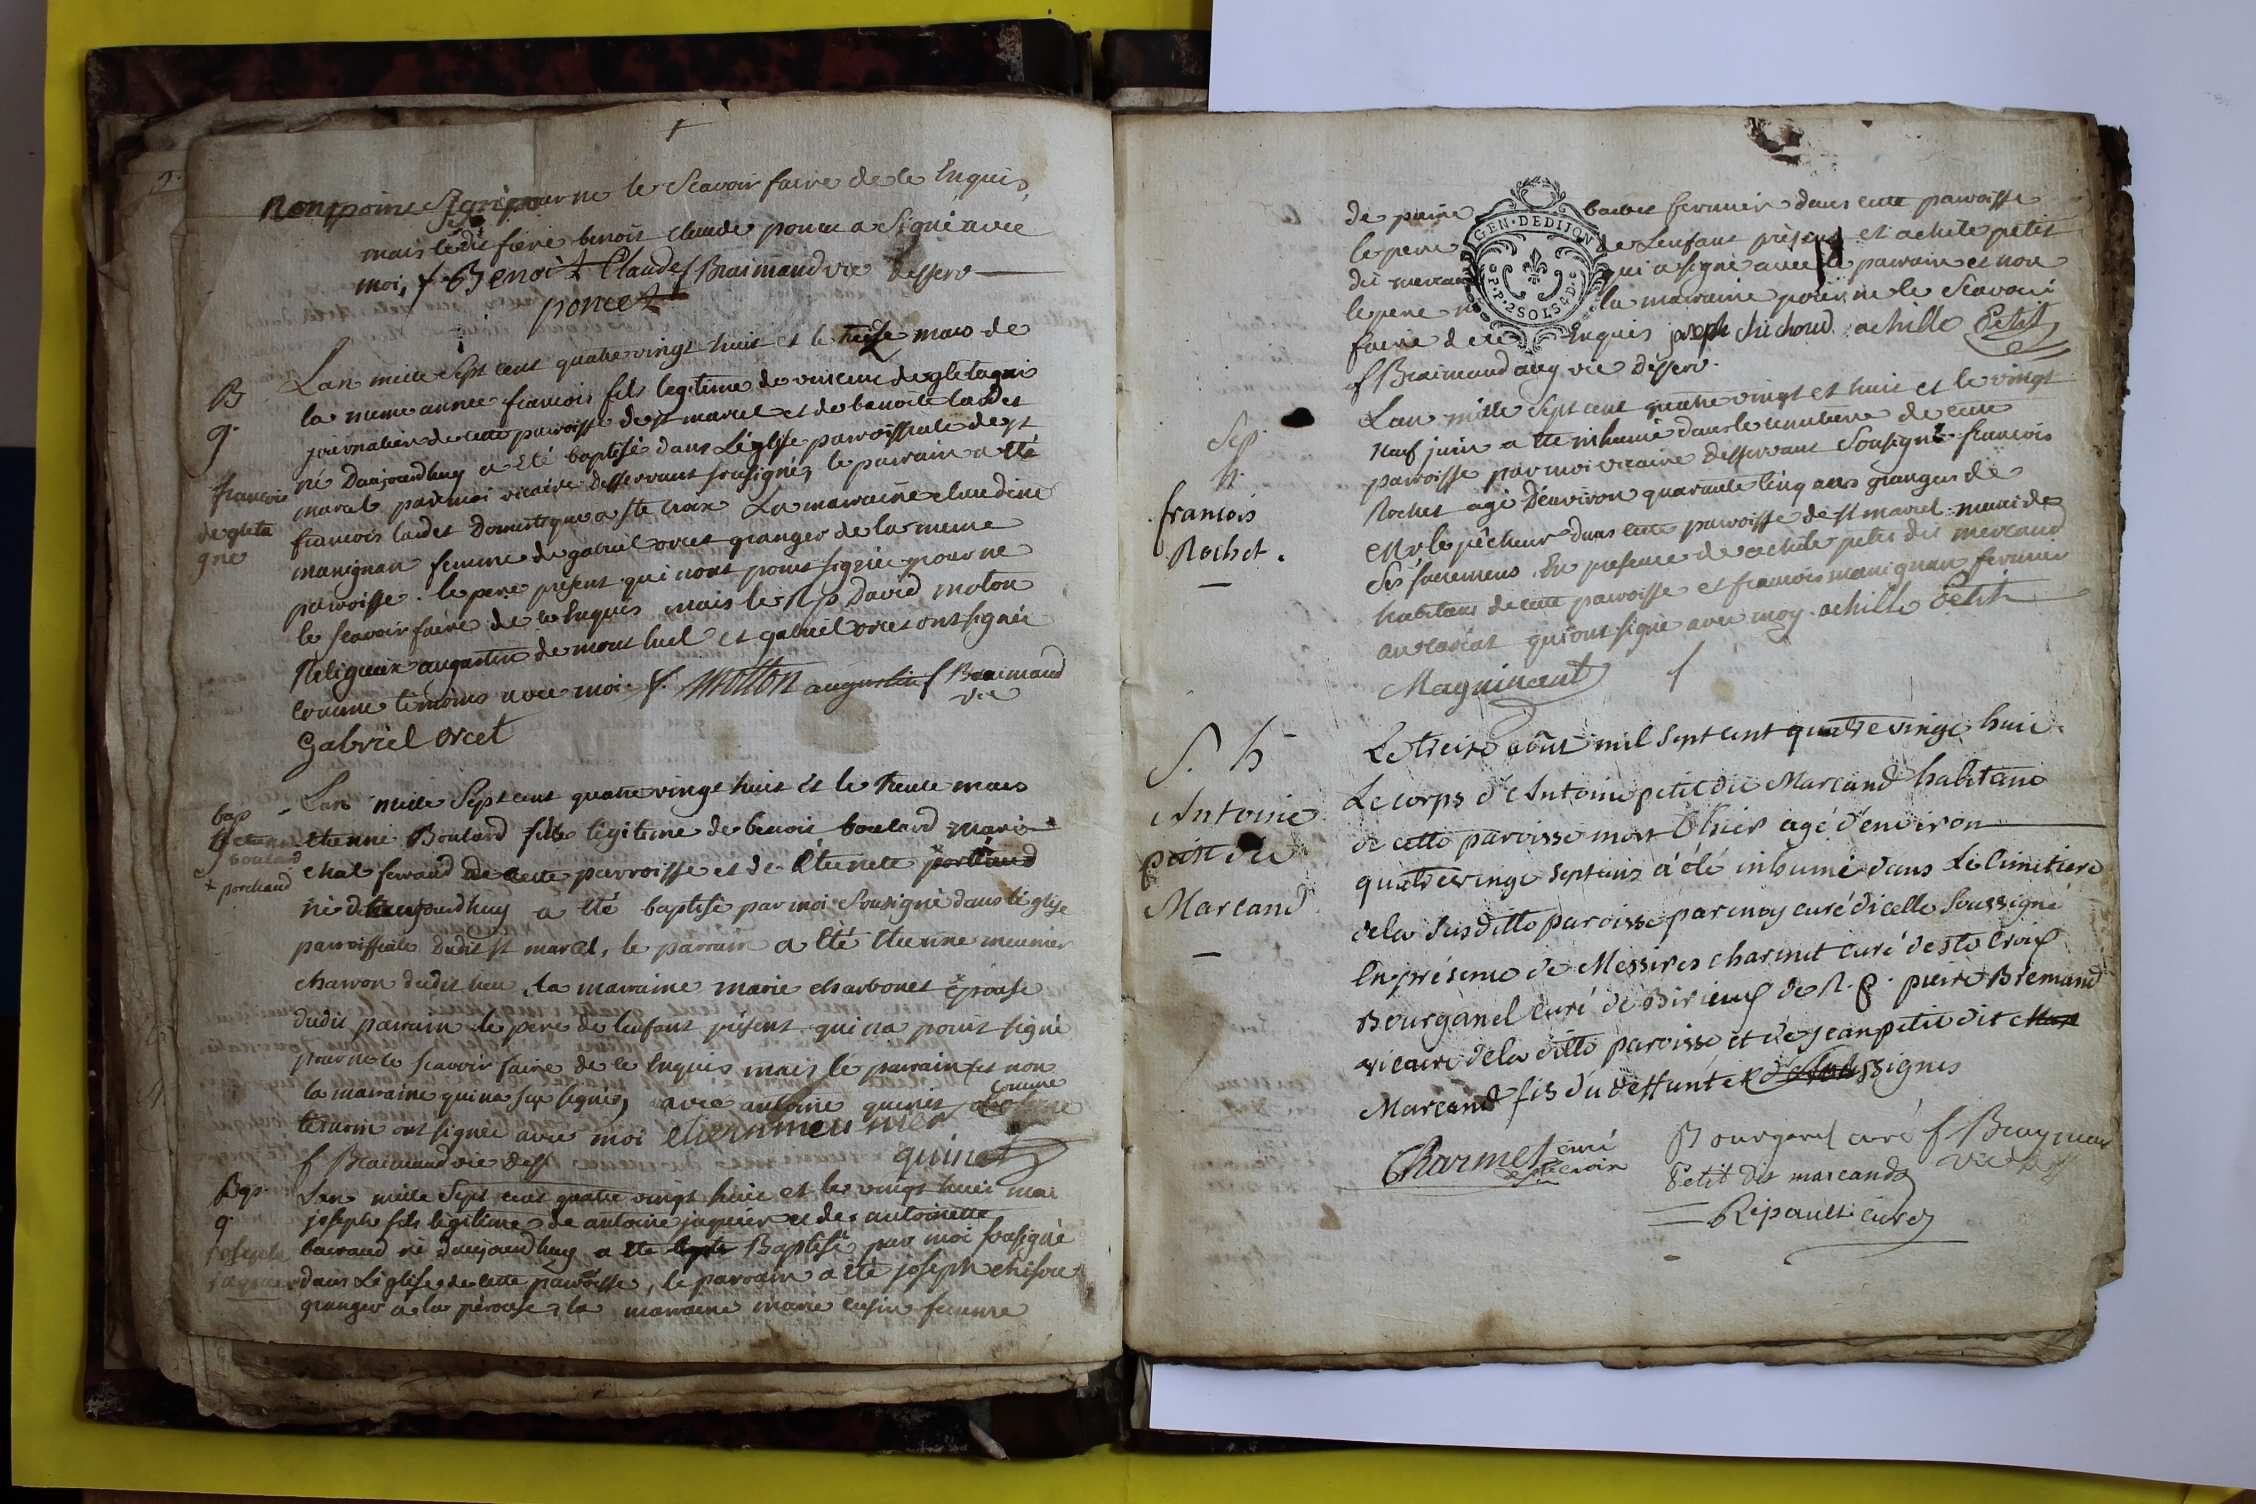 nont point signé pour ne le Scavoir faire de ce Enquis,
mais ledit frère benoit claude poncet a Signé avec
moi, f Benoit Claude f Braimand vic desserv
poncet
B
g.
francois
de gleta
gne
Lan mille Sept cent quatre vingt huit et le treize mars de
la meme annee francois fils legitime de vincent degletagne
journalier de cette paroisse de st marcel et de benoite lardet
né Daujourdhuy a été baptisé dans Léglise paroissiale de st
marcel par moi vicaire desservant sousigné, le parrain a été
francois lardet Domestique a ste croix La marraine claudine
manignan femme de gabriel orcet granger de la meme
paroisse. le pere present qui nont point signé pour ne
le scavoir faire de ce Enquis mais le R p David moton
Religieux augustin de mont luel et gabriel orcet ont signés
comme temoins avec moi f. Motton augustin f Braimand
vic
Gabriel orcet
bap
g etienne
boulard
+ porchaud
Lan mille Sept cent quatre vingt huit et le trente mars
etienne Boulard fils legitime de benoit boulard mari
chal ferrand de cette parroisse et de Etienete
né daujourdhuy a été baptisé par moi Sousigné dans léglise
parroissiale dudit st marcel, le parrain a été Etienne meunier
charron dudit lieu, la marraine marie charbonet épouse
dudit parrain le pere de lenfant présent qui na point signé
pour ne le scavoir faire de ce Enquis mais le parrain et non
la marraine qui na sçu signer, avec antoine quinet comme
temoin ont signée avec moi etienn meunier
f Braimand vic dess quinet
Bap.
g.
joseph
jaquier
Lan mille Sept cent quatre vingt huit et le vingt huit mai
joseph fils légitime de antoine jaquier et de antoinette
baraud né daujourdhuy a ete Baptisé par moi sousigné
dans Léglise de cette parroisse, le parrain a été joseph chichou
granger a la pérouse, la marraine marie cusin femme
de pierre barbet fermier dans cette paroisse
le pere de lenfant présent et achile petit
dit marcand qui a signé avec le parrain et non
le pere ni la marraine pour ne le Scavoir
faire de ce Enquis joseph chichoud achille Petit
f Braimand aug vic desserv.
GEN. DE DIJON
P.P. 2 SOLS 4 D.
Sep.
h.
francois
Rochet.
Lan mille Sept cent quatre vingt et huit et le vingt
neuf juin a été inhumé dans le cimetiere de cette
paroisse par moi vicaire desservant Sousigné francois
Rochet agé Denviron quarante cinq ans granger de
Mr le pêcheur dans cette paroisse de st marcel muni des
Ses sacremens En presence de achile petit dit mercand
habitans de cette paroisse et francois manignan fermier
qui ont signé avec moy. achille Petit
Magninant f
S. h
Antoine
petit dit
Marcand
Le treize août mil sept cent quatre vingt huit.
Le corps d'Antoine petit dit Marcand habitant
de cette paroisse mort hier agé d'environ
quatre vingt sept ans a été inhumé dans Le Cimetiere
de la Susditte paroisse par moy curé d'icelle Soussigné
En présence de Messires charmet curé de ste Croix
Bourganel curé de Birieux de R. P. pierre Bremand
vicaire de la ditte paroisse et de jean petit dit
Marcand fils du deffunt Soussignés
Charmet curé
de ste croix
Bourganel curé f Braymand
vic dess
Petit dit marcand
Ripault curé